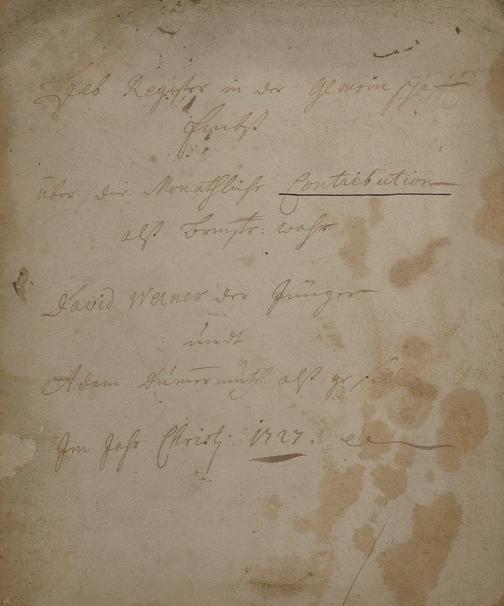 Heb Register in der Gemeinschafft
über die Monathliche Contribution
alß Bmstr: wahr
David Werner der Jünger
undt
Adam Dümermuth alß
Im Jahr Christi 1727.